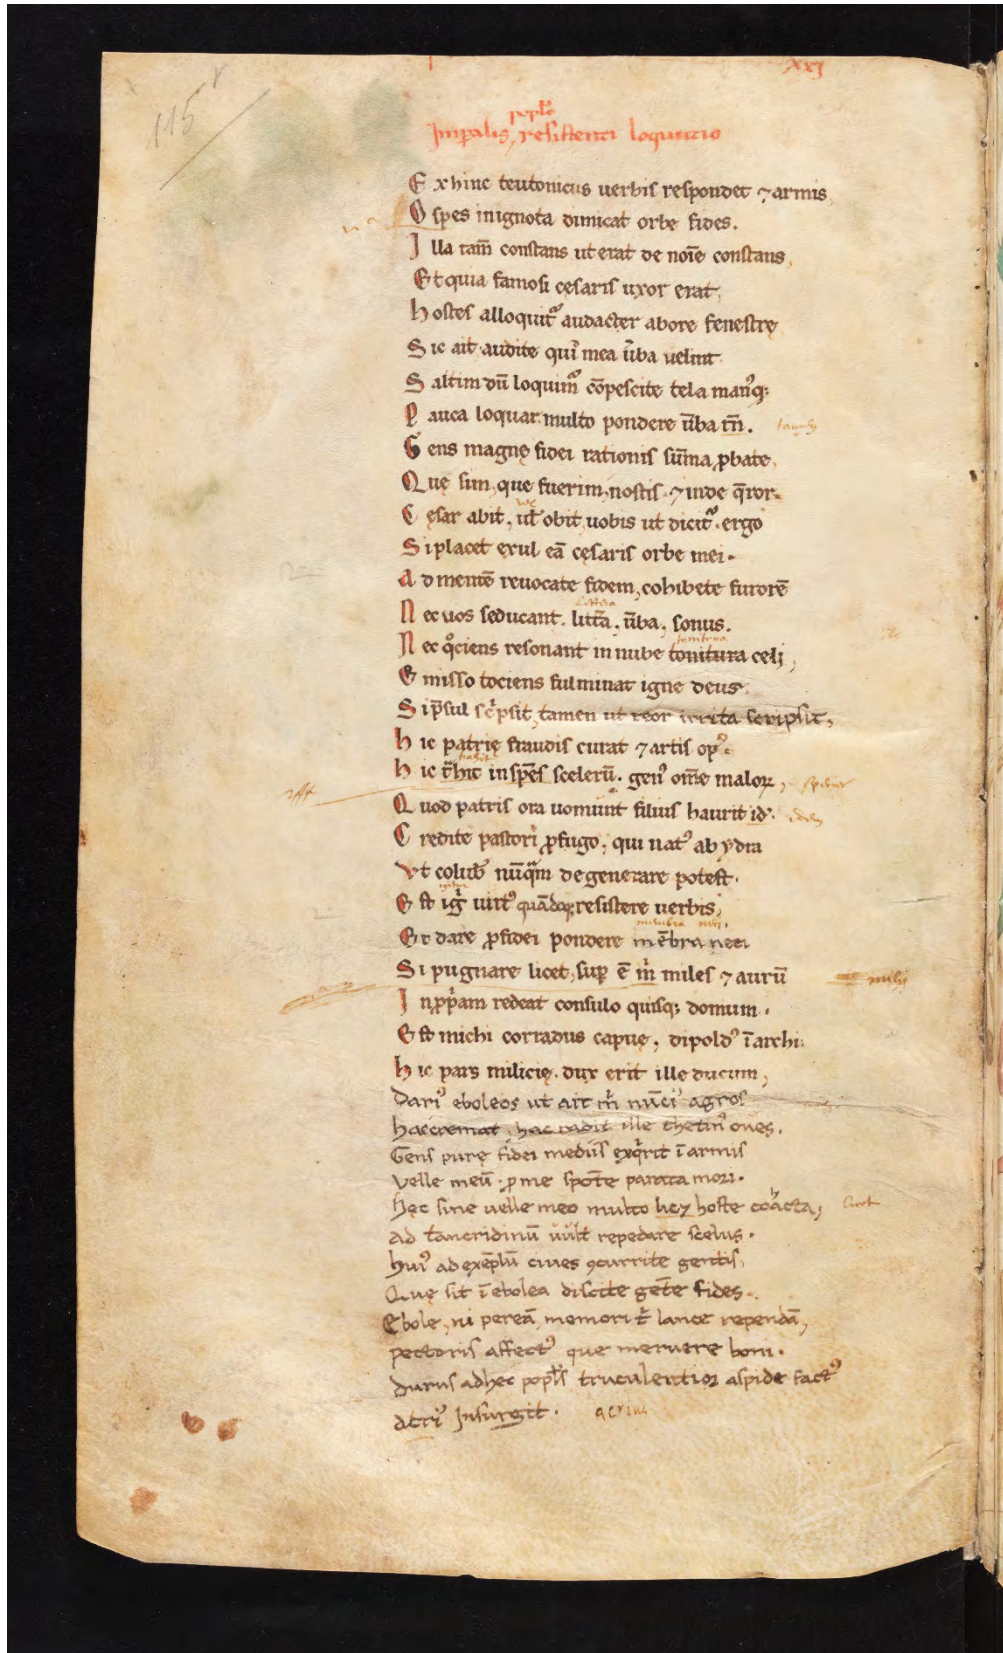 115 r
XXI
poplo
Imperialis, resistenti loquutio
Exhinc teutonicus uerbis respondet ⁊ armis
Ospes in ignota dimicat orbe fides.
Illa tam̄ constans ut erat de noīe constans,
Et quia famosi cęsaris uxor erat,
Hostes alloquit᷑ audacter ab ore fenestrę
Sic ait audite quid mea ūba uelint
Saltim dū loquim᷑ cōpescite tela manꝰq;
Pauca loquar multo pondere ūba tn̄.
Gens magnę fidei rationis sūma ꝓbate,
Quę sim, que fuerim, nostis ⁊ inde q̄ror.
Cęsar abit, ul̄ obit, uobis ut dicit᷑. ergo
Si placet exul eā cęsaris orbe mei.
Ad mentē reuocate fidem, cohibete furorē
littera
Nec uos seducant. litt̄a. ūba. sonus.
tonitrua
Nec q°ciens resonant in nube tonitura celi,
Emisso tociens fulminat igne deus.
Si p̄sul sc̓psit, tamen ut reor irrita scripsit,
Hic patrię fraudis curat ⁊ artis opꝰ.
Hic in sp̄es scelerū. genꝰ om̄e maloꝝ,
Quod patris ora uomunt filius haurit id.
Credite pastori ꝓfugo, qui natꝰ ab ydra
Vt colub̄ nūq̄m degenerare potest.
igitur
Est ig̓ uirtꝰ quādoq; resistere uerbis,
membra neci
Et dare ꝓ fidei pondere mēbra neci
Si pugnare licet, sup̱ ē m̓ miles ⁊ aurū mihi
In ꝓp̓am redeat consulo quisq; domum.
Est michi corradus capuę, dipoldꝰ ī archi.
Hic pars milicię. dux erit ille ducum,
Dariꝰ eboleos ut ait m̓ nūciꝰ agros
Hac cremat, hac radit ille thetinꝰ oues.
Gens purę fidei mediis exq̓rit ī armis
Velle meū. ꝓ me sponte parata mori.
Hęc sine uelle meo multo hoste coacta,
Ad tancridinū uult repedare scelus.
Huiꝰ ad exēplū ciues ꝯcurrite gentis,
Quę sit ī ebolea discite gēte fides.
Ebole, ni pereā, memori t̓ lance rependā,
Pectoris affectꝰ que meruere boni.
Durus ad hec popl̓s truculentior aspide factꝰ
Acriꝰ Insurgit. acrius